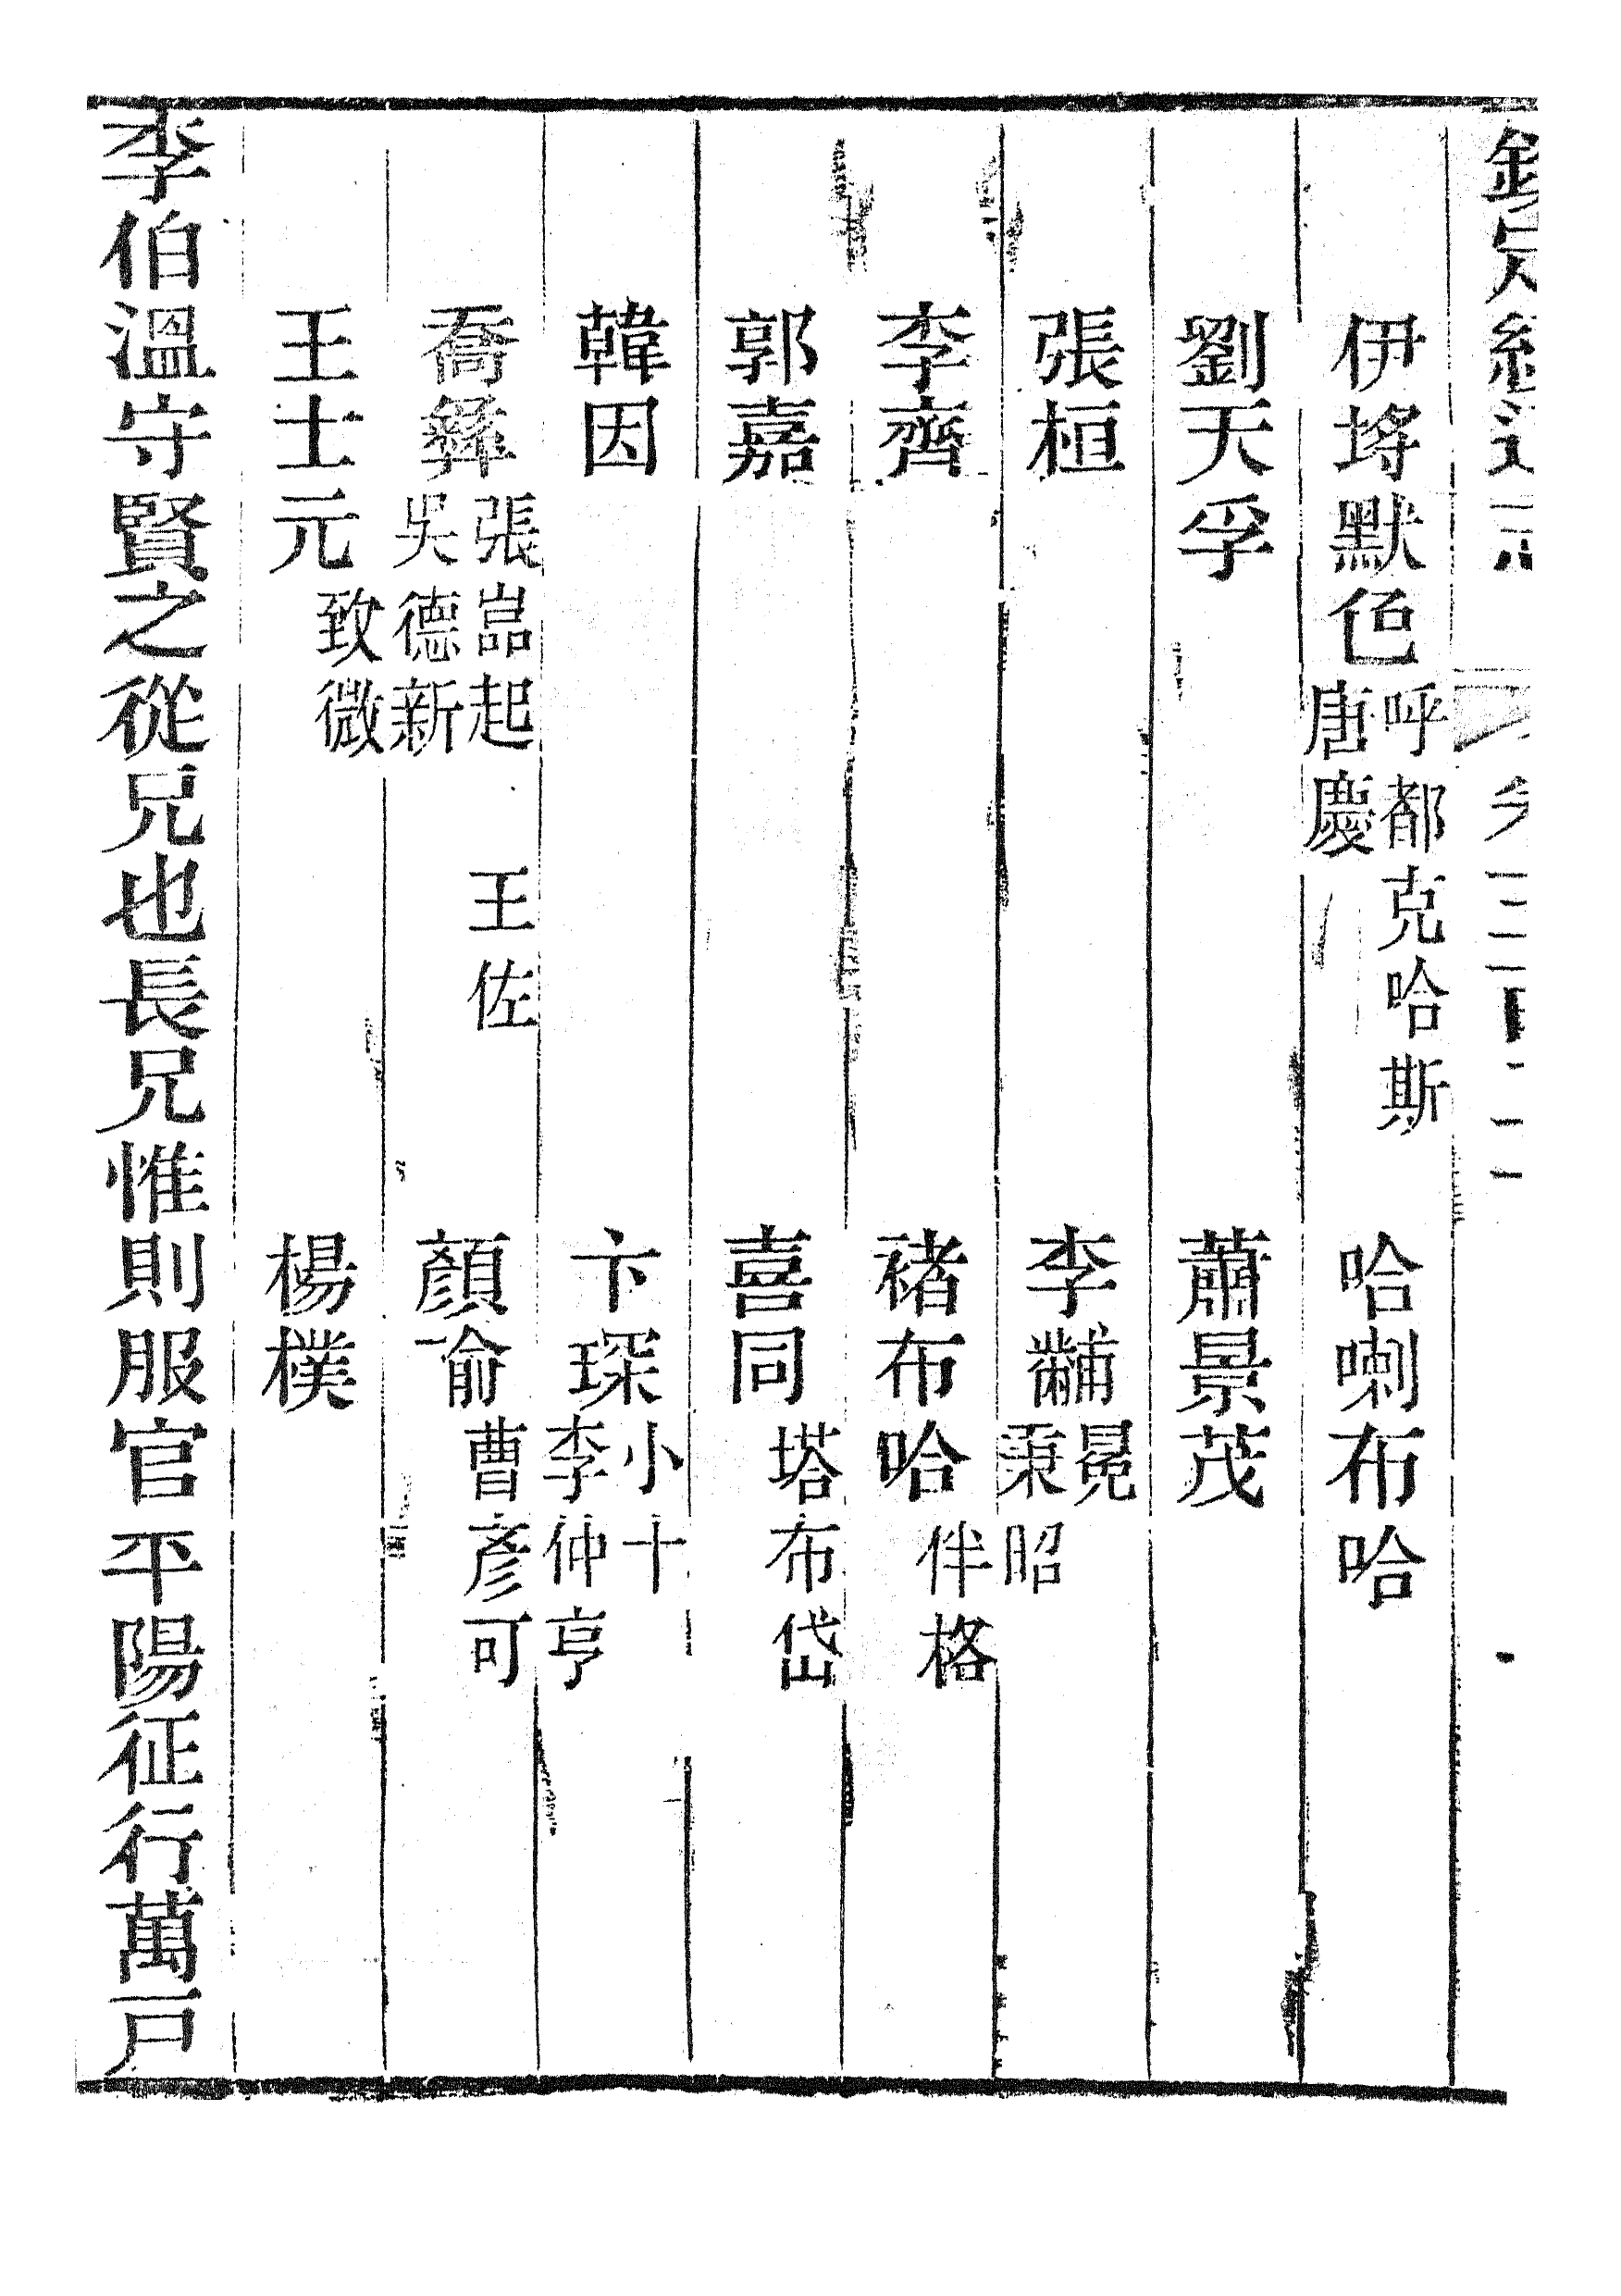 欽定續通志
伊埒默色 呼都克哈斯 唐慶 哈喇布哈
劉天孚 蕭景茂
張桓 李黼 冕 秉昭
李齊 褚布哈 伴格
郭嘉 喜同 塔布岱
韓因 卞琛 小十 李仲亨
喬彝 張喦起 王佐 吳德新 顏瑜 曹彥可
王士元 致微 楊樸
李伯溫守賢之從兄也長兄惟則服官平陽征行萬戸